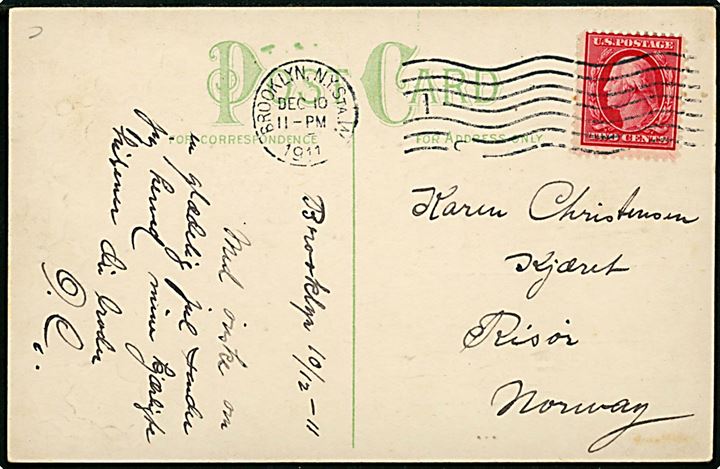 POST CARD
FOR CORRESPONDENCE
FOR ADDRESS ONLY
BROOKLYN, N.Y. STA.
DEC 10
11-PM
1911
1
C
U.S. POSTAGE
CENTS
Brooklyn 10/12-11
Med ønske om
en glædelig jul sender
jeg herved mine kjærligste
hilsener Din broder
O.C.
Karen Christensen
Kjæret
Risør
Norway